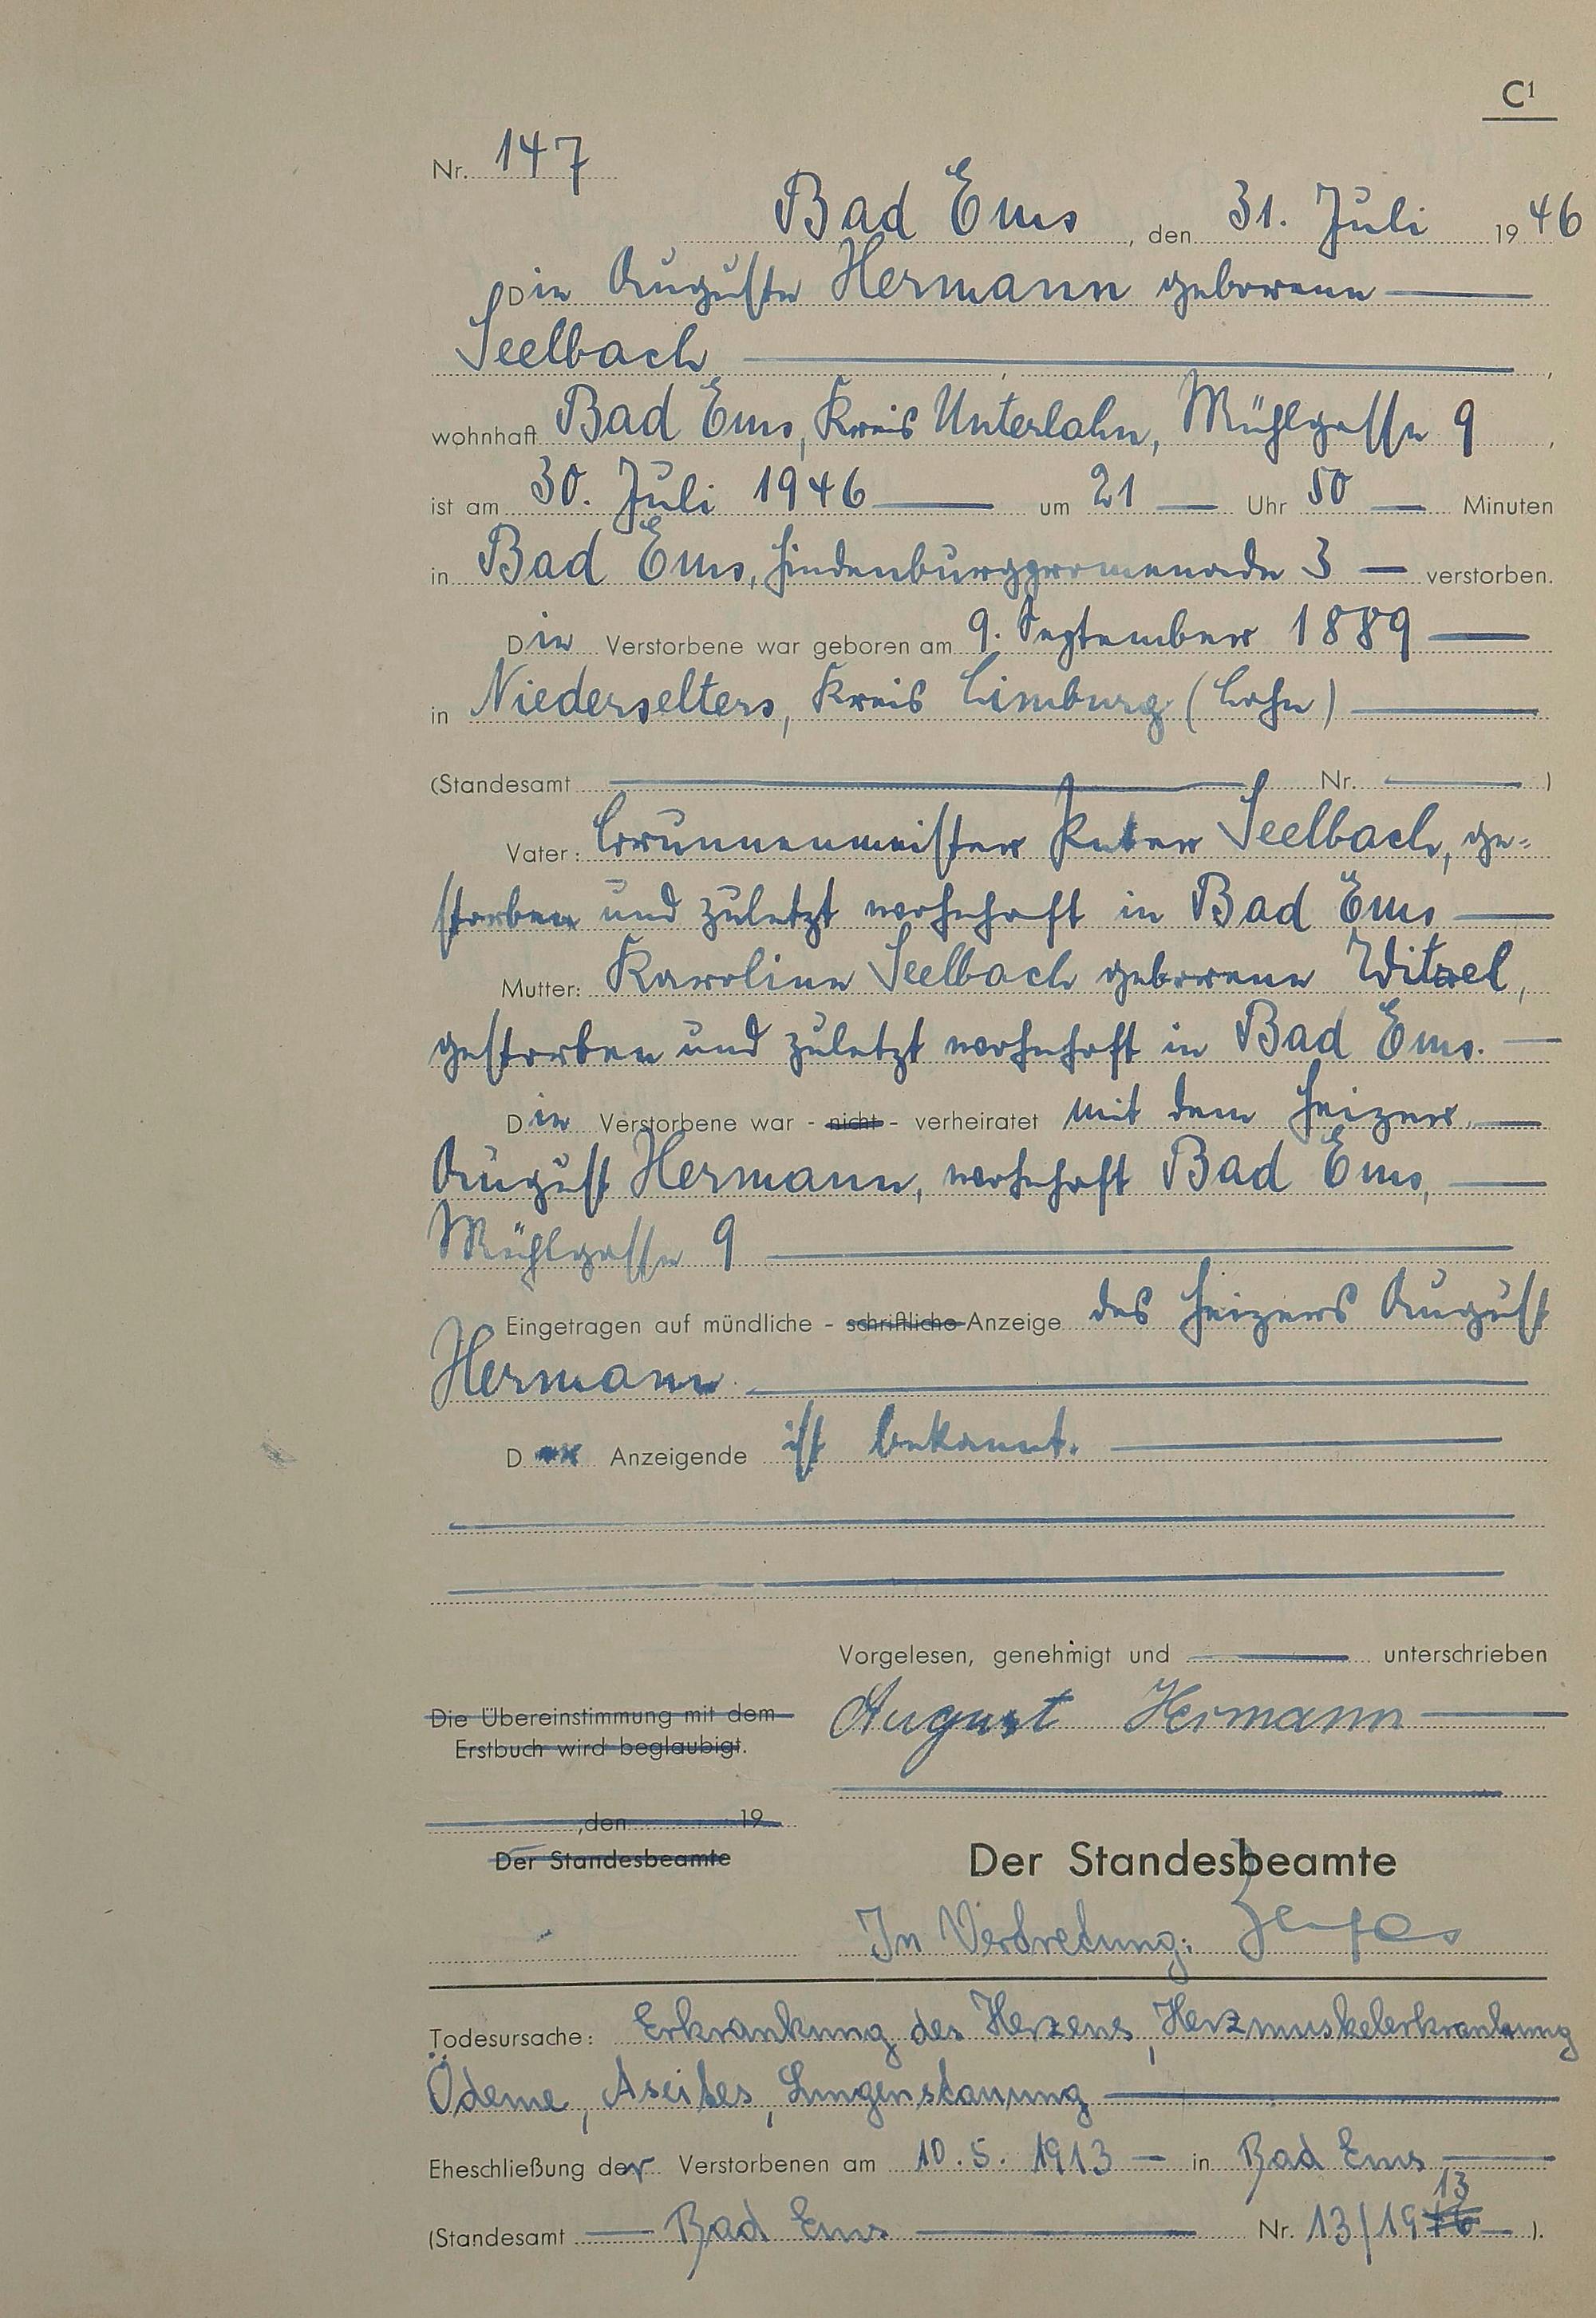 C¹
Nr. 147
Bad Ems, den 31. Juli 1946
Die Auguste Hermann geborene
Seelbach,
wohnhaft Bad Ems, Kreis Unterlahn, Mühlgasse 9,
ist am 30. Juli 1946 um 21 Uhr 50 Minuten
in Bad Ems, Hindenburgpromenade 3 verstorben.
Die Verstorbene war geboren am 9. September 1889
in Niederselters, Kreis Limburg (Lahn)
(Standesamt Nr. )
Vater: Brunnenmeister Peter Seelbach, ge-
storben und zuletzt wohnhaft in Bad Ems
Mutter: Karoline Seelbach geborene Witzel,
gestorben und zuletzt wohnhaft in Bad Ems.
Die Verstorbene war - nicht - verheiratet mit dem Heizer
August Hermann, wohnhaft Bad Ems,
Mühlgasse 9
Eingetragen auf mündliche - schriftliche Anzeige des Heizers August
Hermann
Der Anzeigende ist bekannt.
Vorgelesen, genehmigt und unterschrieben
Die Übereinstimmung mit dem
Erstbuch wird beglaubigt.
August Hermann
, den 19
Der Standesbeamte
Der Standesbeamte
In Vertretung:
Todesursache: Erkrankung des Herzens, Herzmuskelerkrankung
Ödeme, Ascites, Lungenstauung
Eheschließung der Verstorbenen am 10.5.1913 in Bad Ems
(Standesamt Bad Ems Nr. 13/1913 ).